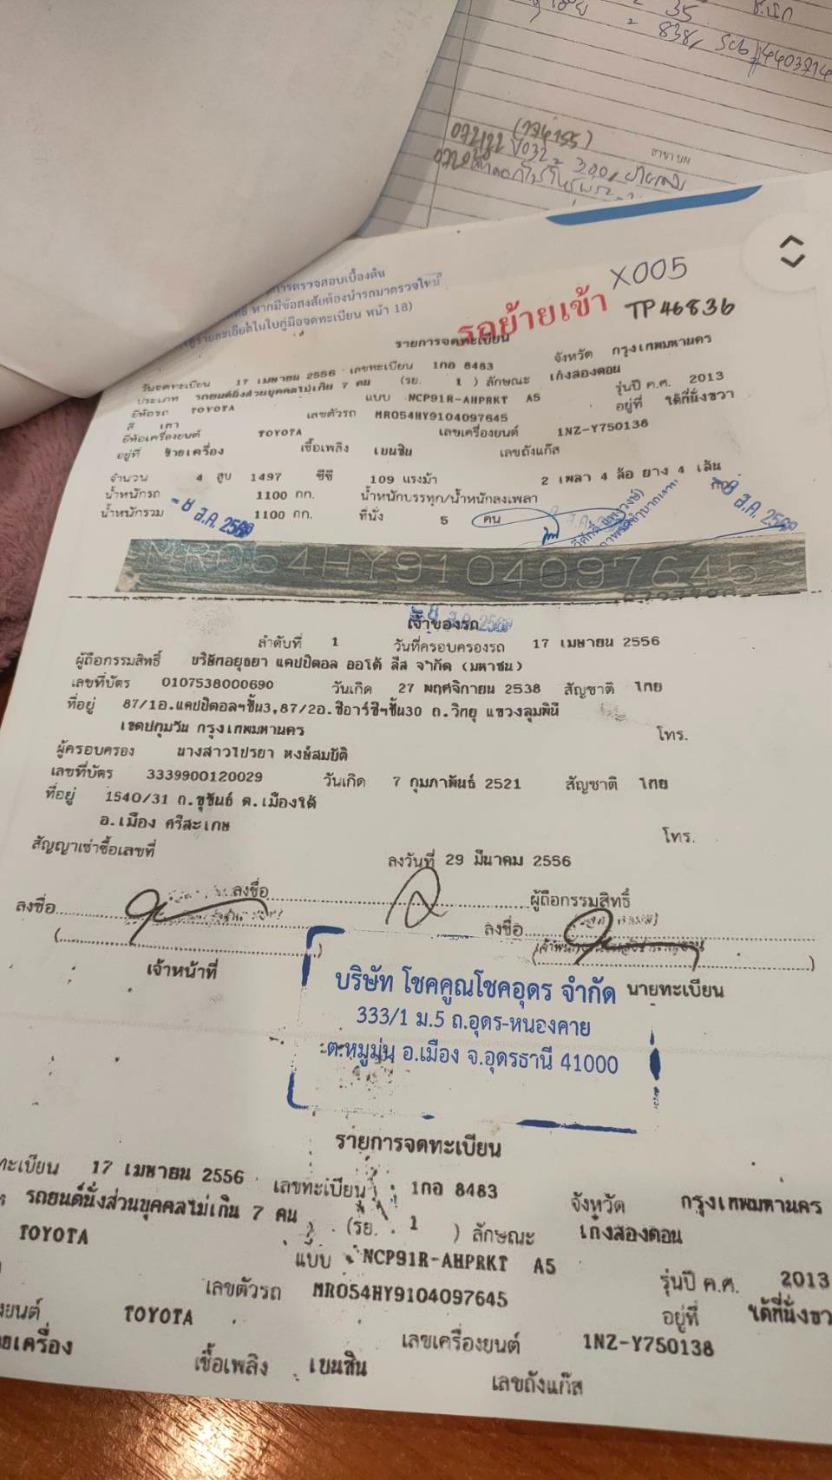 35
= 838/ Scb
300/
X005
รถย้ายเข้า TP4683b
หากมีข้อสงสัยต้องนำรถมาตรวจใหม่
หน้า 18)
รายการจดทะเบียน
วันจดทะเบียน 17 เมษายน 2556 เลขทะเบียน 1กอ 8483 จังหวัด กรุงเทพมหานคร
ประเภท รถยนต์นั่งส่วนบุคคลไม่เกิน 7 คน (รย. 1 ) ลักษณะ เก๋งสองตอน
ยี่ห้อรถ TOYOTA แบบ NCP91R-AHPRKT A5 รุ่นปี ค.ศ. 2013
สี เทา เลขตัวรถ MR054HY9104097645 อยู่ที่ ใต้ที่นั่งขวา
ยี่ห้อเครื่องยนต์ TOYOTA เลขเครื่องยนต์ 1NZ-Y750138
อยู่ที่ ซ้ายเครื่อง เชื้อเพลิง เบนซิน เลขถังแก๊ส
จำนวน 4 สูบ 1497 ซีซี 109 แรงม้า 2 เพลา 4 ล้อ ยาง 4 เส้น
น้ำหนักรถ 1100 กก. น้ำหนักบรรทุก/น้ำหนักลงเพลา
น้ำหนักรวม 1100 กก. ที่นั่ง 5 คน
MR054HY9104097645
เจ้าของรถ
ลำดับที่ 1 วันที่ครอบครองรถ 17 เมษายน 2556
ผู้ถือกรรมสิทธิ์ บริษัทอยุธยา แคปปิตอล ออโต้ ลีส จำกัด (มหาชน)
เลขที่บัตร 0107538000690 วันเกิด 27 พฤศจิกายน 2538 สัญชาติ ไทย
ที่อยู่ 87/1อ.แคปปิตอลฯชั้น3,87/2อ.ซีอาร์ซีฯชั้น30 ถ.วิทยุ แขวงลุมพินี
เขตปทุมวัน กรุงเทพมหานคร โทร.
ผู้ครอบครอง นางสาวไปรยา หงษ์สมบัติ
เลขที่บัตร 3339900120029 วันเกิด 7 กุมภาพันธ์ 2521 สัญชาติ ไทย
ที่อยู่ 1540/31 ถ.ขุขันธ์ ต.เมืองใต้
อ.เมือง ศรีสะเกษ โทร.
สัญญาเช่าซื้อเลขที่ ลงวันที่ 29 มีนาคม 2556
ลงชื่อ ผู้ถือกรรมสิทธิ์
ลงชื่อ ลงชื่อ
เจ้าหน้าที่ นายทะเบียน
บริษัท โชคคูณโชคอุดร จำกัด
333/1 ม.5 ถ.อุดร-หนองคาย
ต.หมูม่น อ.เมือง จ.อุดรธานี 41000
รายการจดทะเบียน
ทะเบียน 17 เมษายน 2556 เลขทะเบียน 1กอ 8483 จังหวัด กรุงเทพมหานคร
รถยนต์นั่งส่วนบุคคลไม่เกิน 7 คน (รย. 1 ) ลักษณะ เก๋งสองตอน
TOYOTA แบบ NCP91R-AHPRKT A5 รุ่นปี ค.ศ. 2013
เลขตัวรถ MR054HY9104097645 อยู่ที่ ใต้ที่นั่งขว
งยนต์ TOYOTA เลขเครื่องยนต์ 1NZ-Y750138
ยเครื่อง เชื้อเพลิง เบนซิน เลขถังแก๊ส